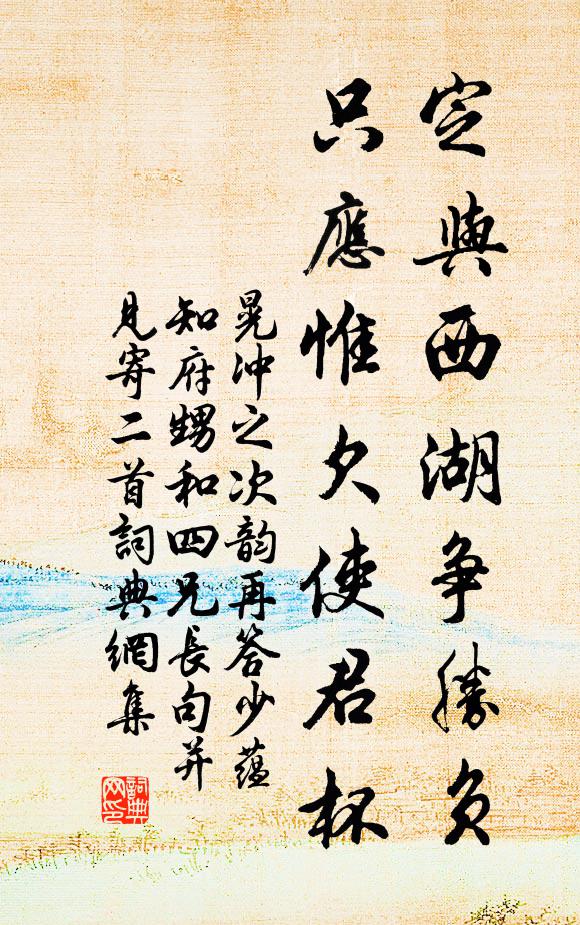 定與西湖爭勝負
只應惟欠使君杯
晁沖之次韵再答少蘊
知府甥和四兄長句并
見寄二首詞典網集
詞典
网印